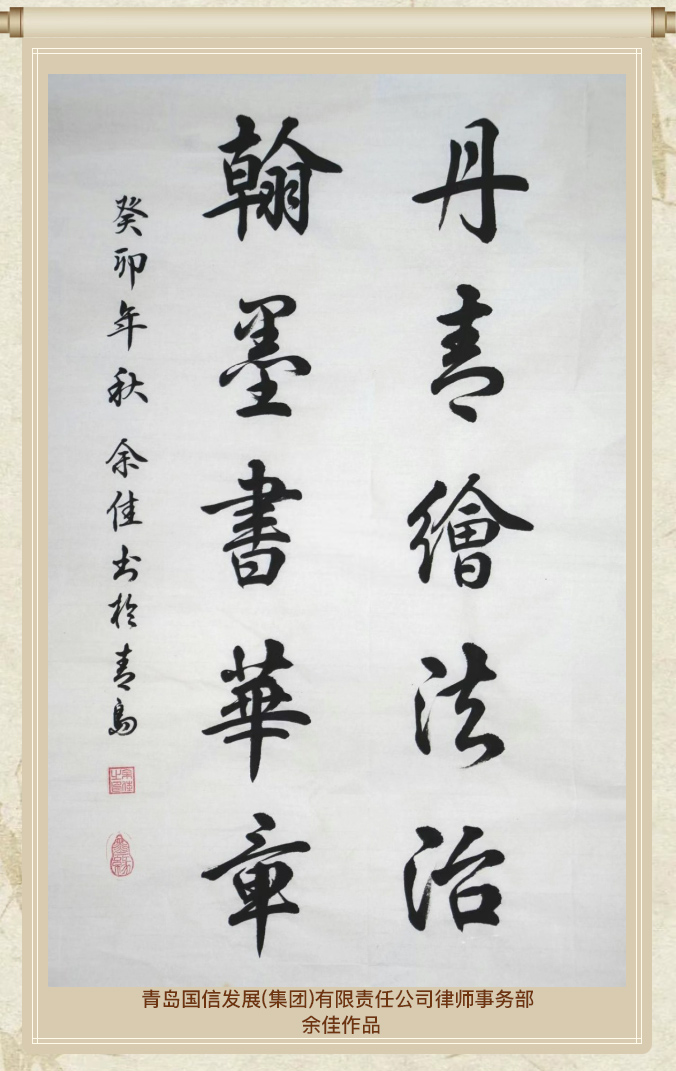 丹青繪法治
翰墨書華章
癸卯年秋 余佳书於青島
青岛国信发展(集团)有限责任公司律师事务部
余佳作品